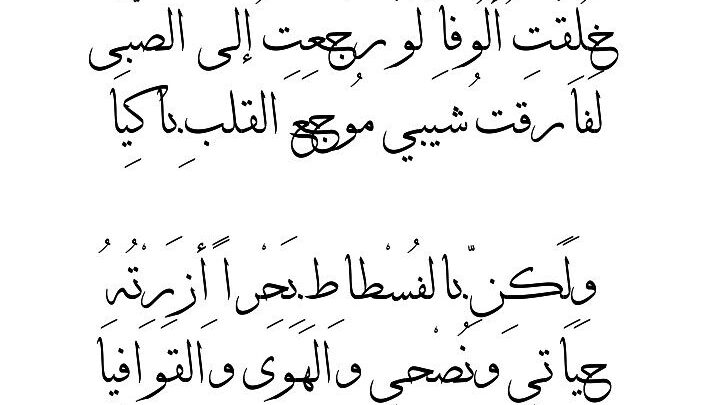 خُلِقْتُ أَلُوفاً لَوْ رَجَعْتُ إِلى الصِّبَى
لَفارَقتُ شَيبي مُوجَعَ القَلبِ باكِيا
وَلَكِنَّ بِالفُسْطاطِ بَحْراً أَزَرْتُهُ
حَيَاتي وَنُصْحي وَالهَوَى وَالقَوَافِيَا